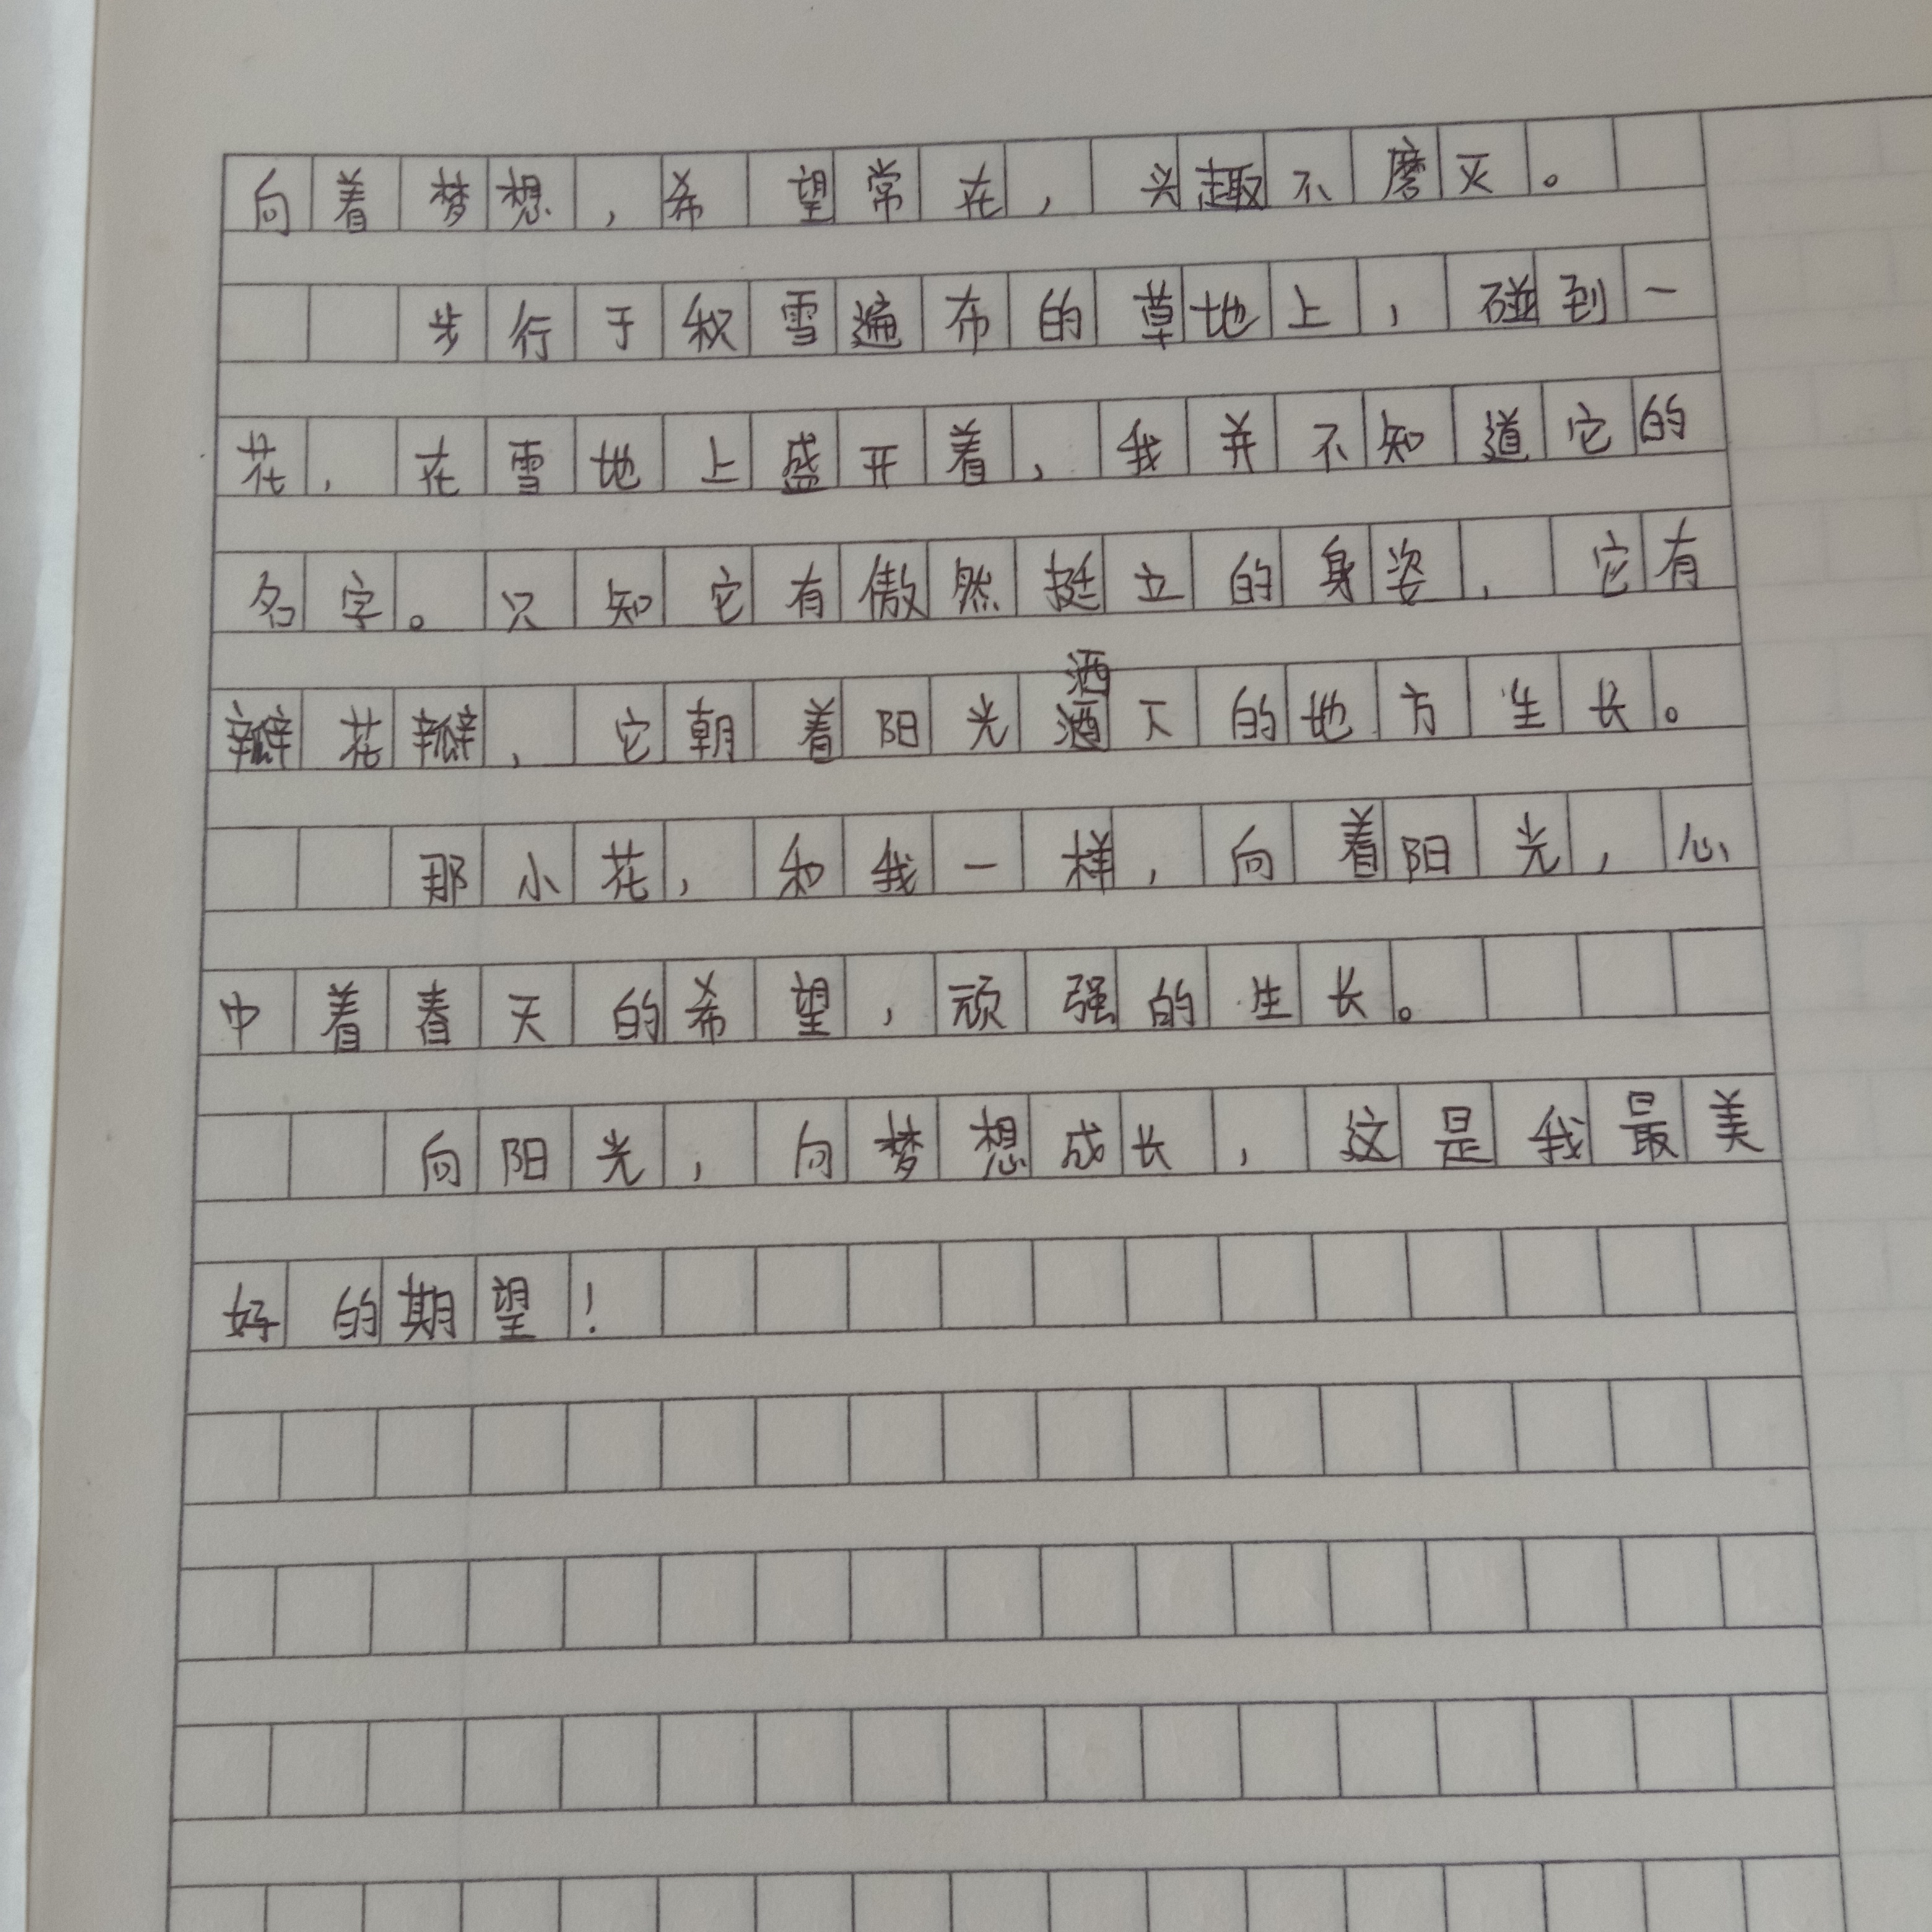 向着梦想，希望常在，兴趣不磨灭。
步行于积雪遍布的草地上，碰到一
花，在雪地上盛开着，我并不知道它的
名字。只知它有傲然挺立的身姿，它有
瓣花瓣，它朝着阳光洒下的地方生长。
那小花，和我一样，向着阳光，心
中着春天的希望，顽强的生长。
向阳光，向梦想成长，这是我最美
好的期望！